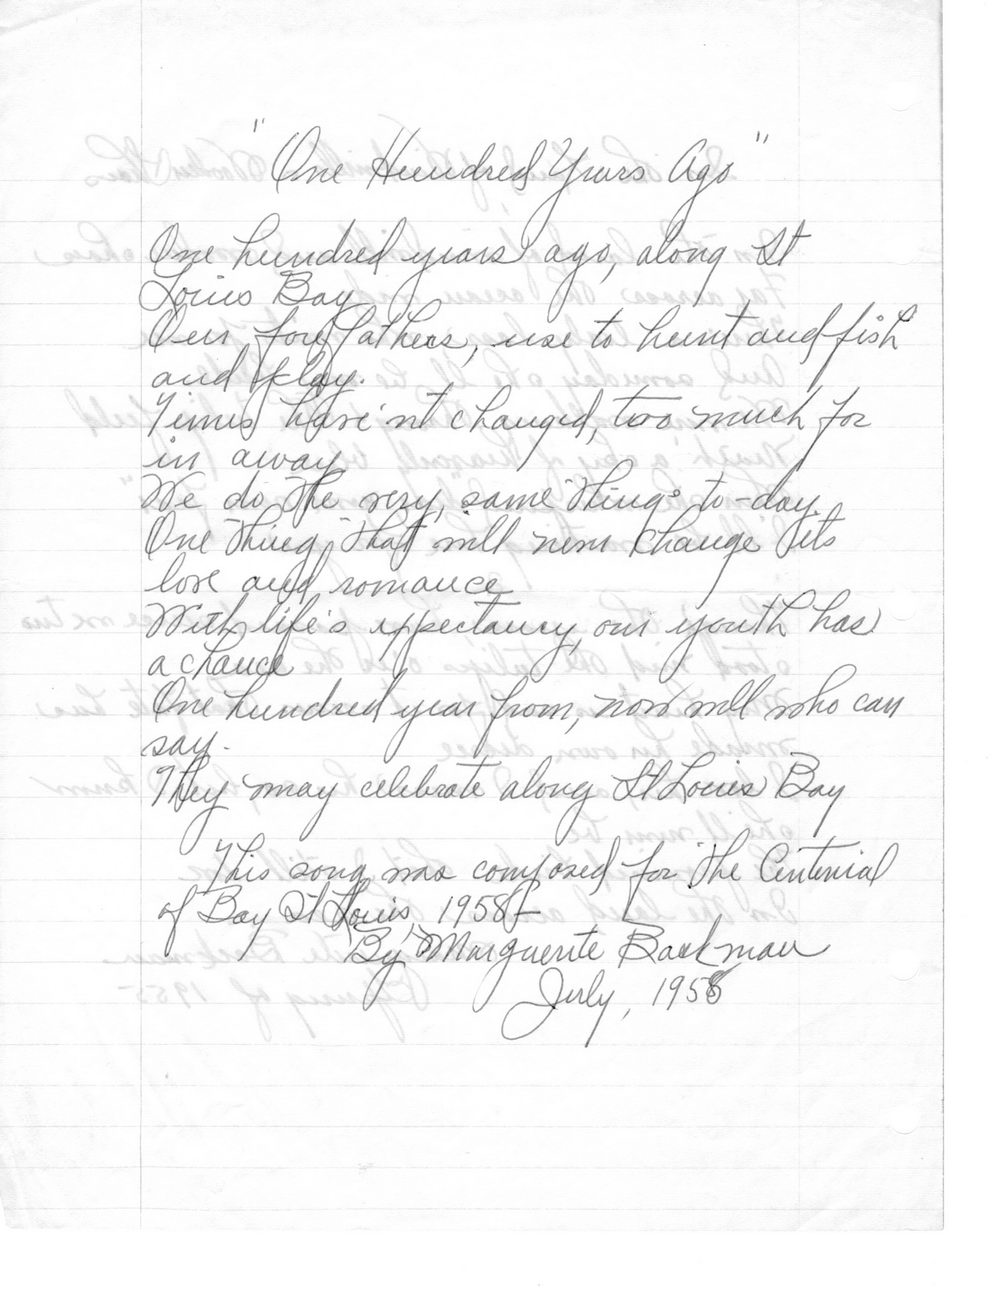 "One Hundred Years Ago"
One hundred years ago, along St
Louis Bay
Our forefathers, use to hunt and fish
and play.
Times have'nt changed, too much for
in away
We do the very, same things to-day.
One thing, that will never change its
love and romance
With life's expectancy, our youth has
a chance
One hundred year from, now will who can
say.
They may celebrate along St Louis Bay
This song was composed for the Centenial
of Bay St Louis, 1958-
By Marguerite Backman
July, 1958